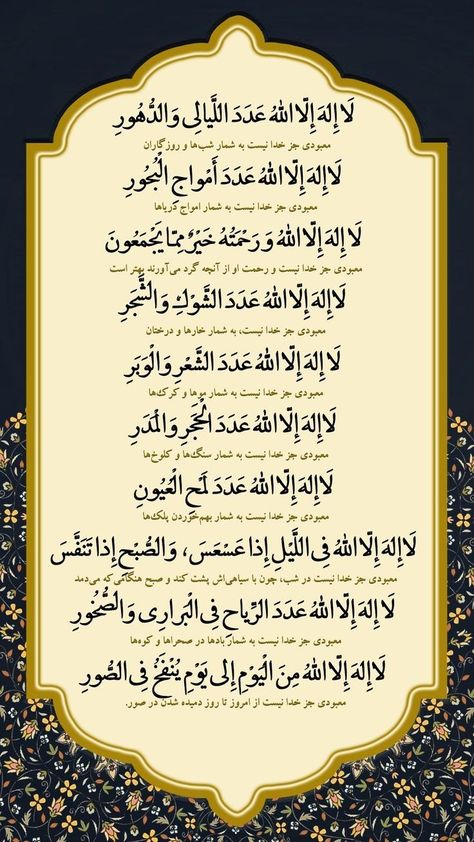 لَا إِلهَ إِلَّا اللهُ عَدَدَ اللَّيَالِى وَالدُّهُورِ
معبودی جز خدا نیست به شمار شب‌ها و روزگاران
لَا إِلهَ إِلَّا اللهُ عَدَدَ أَمْواجِ الْبُحُورِ
معبودی جز خدا نیست به شمار امواج دریاها
لَا إِلهَ إِلَّا اللهُ وَ رَحْمَتُهُ خَيْرٌ مِمّا يَجْمَعُونَ
معبودی جز خدا نیست و رحمت او از آنچه گرد می‌آورند بهتر است
لَا إِلهَ إِلَّا اللهُ عَدَدَ الشَّوْكِ وَالشَّجَرِ
معبودی جز خدا نیست، به شمار خارها و درختان
لَا إِلهَ إِلَّا اللهُ عَدَدَ الشَّعْرِ وَالْوَبَرِ
معبودی جز خدا نیست به شمار موها و کرک‌ها
لَا إِلهَ إِلَّا اللهُ عَدَدَ الْحَجَرِ وَالْمَدَرِ
معبودی جز خدا نیست به شمار سنگ‌ها و کلوخ‌ها
لَا إِلهَ إِلَّا اللهُ عَدَدَ لَمْحِ الْعُيُونِ
معبودی جز خدا نیست به شمار بهم‌خوردن پلک‌ها
لَا إِلهَ إِلَّا اللهُ فِى اللَّيْلِ إِذا عَسْعَسَ، وَالصُّبْحِ إِذا تَنَفَّسَ
معبودی جز خدا نیست در شب، چون با سیاهی‌اش پشت کند و صبح هنگامی‌که می‌دمد
لَا إِلهَ إِلَّا اللهُ عَدَدَ الرِّياحِ فِى الْبَرارِى وَالصُّخُورِ
معبودی جز خدا نیست به شمار بادها در صحراها و کوه‌ها
لَا إِلهَ إِلَّا اللهُ مِنَ الْيَوْمِ إِلى يَوْمِ يُنْفَخُ فِى الصُّورِ
معبودی جز خدا نیست از امروز تا روز دمیده شدن در صور.